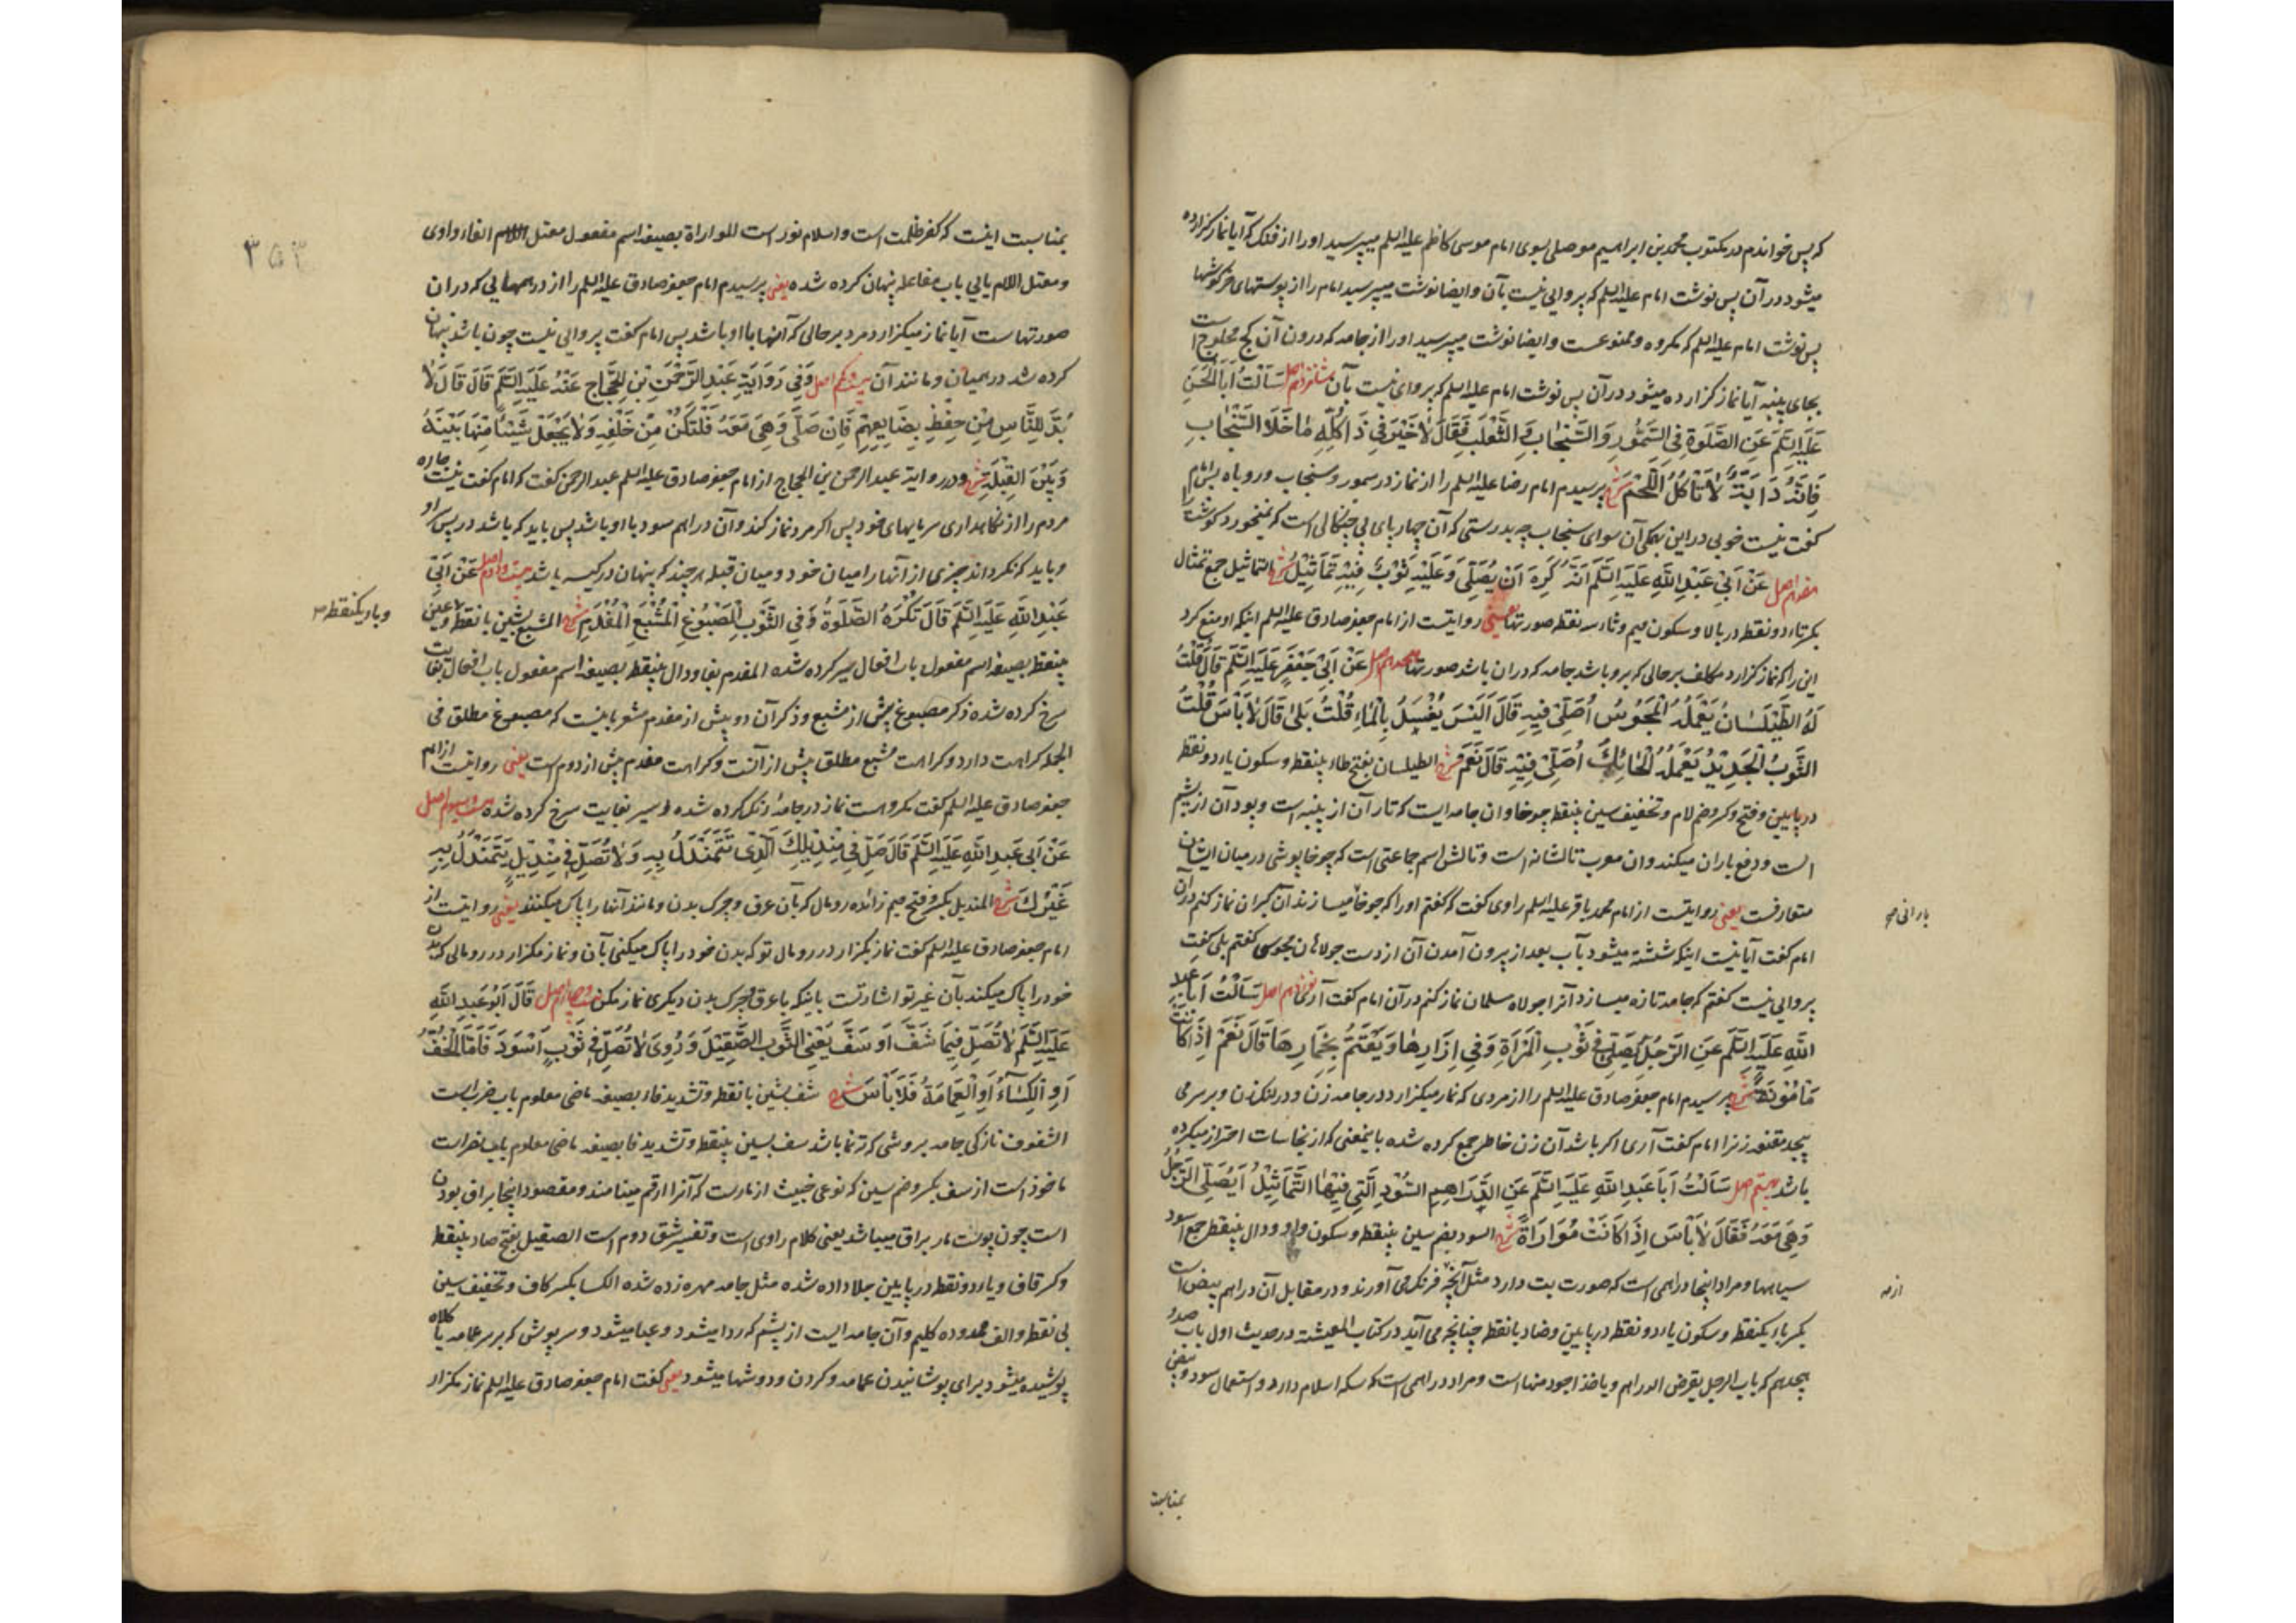 که پس خواندم در مکتوب محمد بن ابراهیم موصلی بسوی امام موسی کاظم علیه السلم میپرسید او را از فنک که آیا نماز گزارده
میشود در آن پس نوشت امام علیه السلم که پروایی نیست بآن و ایضا نوشت میپرسید امام را از پوستهای خرگوشها
پس نوشت امام علیه السلم که مکروه و ممنوعست و ایضا نوشت میپرسید او را از جامه که درون آن کج محلوج است
بجای پنبه آیا نماز گزارده میشود در آن پس نوشت امام علیه السلم که پروای نیست بآن شانزدهم اصل سَأَلْتُ أَبَا الْحَسَنِ
عَلَيْهِ السَّلَمُ عَنِ الصَّلَوةِ فِي السَّمُّورِ وَ السَّنْجَابِ وَ الثَّعْلَبِ فَقَالَ لَا خَيْرَ فِي ذَا كُلِّهِ مَا خَلَا السَّنْجَابِ
فَإِنَّهُ دَابَّةٌ لَا تَأْكُلُ اللَّحْمَ شرح پرسیدم امام رضا علیه السلم را از نماز در سمور و سنجاب و روباه پس امام
گفت نیست خوبی در این همگی آن سوای سنجاب چه بدرستی که آن چهارپای بی چنگالی است که نمیخورد گوشت را
هفدهم اصل عَنْ أَبِي عَبْدِ اللَّهِ عَلَيْهِ السَّلَمُ أَنَّهُ كَرِهَ أَنْ يُصَلِّيَ وَ عَلَيْهِ ثَوْبٌ فِيهِ تَمَاثِيلُ شرح التماثیل جمع تمثال
بکسر تاء دو نقطه در بالا و سکون میم و ثاء سه نقطه صورتها یعنی روایتست از امام جعفر صادق علیه السلم اینکه او منع کرد
این را که نماز گزارد مکلف بر حالی که بر او باشد جامه که در ان باشد صورتها هجدهم اصل عَنْ أَبِي جَعْفَرٍ عَلَيْهِ السَّلَمُ قَالَ قُلْتُ
لَهُ الطَّيْلَسَانُ يَعْمَلُهُ الْمَجُوسُ أُصَلِّي فِيهِ قَالَ أَلَيْسَ يُغْسَلُ بِالْمَاءِ قُلْتُ بَلَى قَالَ لَا بَأْسَ قُلْتُ
الثَّوْبُ الْجَدِيدُ يَعْمَلُهُ الْحَائِكُ أُصَلِّي فِيهِ قَالَ نَعَمْ شرح الطیلسان بفتح طاء بینقطه و سکون یاء دو نقطه
در پایین و فتح و کسر و ضم لام و تخفیف سین بینقطه چوخا و ان جامه ایست که تار آن از پنبه است و پود آن از پشم
است و دفع باران میکند و ان معرب تالشانه است و تالش اسم جماعتی است که چوخاپوشی در میان ایشان
متعارفست یعنی روایتست از امام محمد باقر علیه السلم راوی گفت که گفتم او را که چوخا میسازند آن گبران نماز کنم در آن
بارانی صح
امام گفت آیا نیست اینکه شسته میشود بآب بعد از بیرون آمدن آن از دست جولاهان مجوسی گفتم بلی گفت
پروایی نیست گفتم که جامه تازه میسازد آنرا جولاه مسلمان نماز کنم در آن امام گفت آری نوزدهم اصل سَأَلْتُ أَبَا عَبْدِ
اللَّهِ عَلَيْهِ السَّلَمُ عَنِ الرَّجُلِ يُصَلِّي فِي ثَوْبِ الْمَرْأَةِ وَ فِي إِزَارِهَا وَ يَعْتَمُّ بِخِمَارِهَا قَالَ نَعَمْ إِذَا كَانَتْ
مَأْمُونَةً شرح پرسیدم امام جعفر صادق علیه السلم را از مردی که نماز میگزارد در جامه زن و در لنگ زن و بر سر می
پیچد مقنعه زنرا امام گفت آری اگر باشد آن زن خاطر جمع کرده شده باینمعنی که از نجاسات احتراز میکرده
باشد بیستم اصل سَأَلْتُ أَبَا عَبْدِ اللَّهِ عَلَيْهِ السَّلَمُ عَنِ الدَّرَاهِمِ السُّودِ الَّتِي فِيهَا التَّمَاثِيلُ أَيُصَلِّي الرَّجُلُ
وَ هِيَ مَعَهُ فَقَالَ لَا بَأْسَ إِذَا كَانَتْ مُوَارَاةً شرح السود بضم سین بینقطه و سکون واو و دال بینقطه جمع اسود
سیاهها و مراد اینجا دراهمی است که صورت بت دارد مثل آنچه فرنگ می آورند و در مقابل آن دراهم بیض است
از صح
بکسر باء یکنقطه و سکون یاء دو نقطه در پایین و ضاد بانقطه چنانچه می آید در کتاب المعیشة در حدیث اول باب صد و
هجدهم که باب الرجل یقرض الدراهم و یاخذ اجود منها است و مراد دراهمی است که سکه اسلام دارد و استعمال سود و بیض
بمناسبت
۳۵۳
بمناسبت اینست که کفر ظلمت است و اسلام نور است المواراة بصیغه اسم مفعول معتل الفاء واوی
و معتل اللام یایی باب مفاعله پنهان کرده شده یعنی پرسیدم امام جعفر صادق علیه السلم را از درهمهایی که در ان
صورتهاست آیا نماز میگزارد مرد بر حالی که آنها با او باشد پس امام گفت پروایی نیست چون باشد پنهان
کرده شد در همیان و مانند آن بیست و یکم اصل وَ فِي رَوَايَةِ عَبْدِ الرَّحْمَنِ بْنِ الْحَجَّاجِ عَنْهُ عَلَيْهِ السَّلَمُ قَالَ قَالَ لَا
بُدَّ لِلنَّاسِ مِنْ حِفْظِ بِضَايِعِهِمْ فَإِنْ صَلَّى وَ هِيَ مَعَهُ فَلْتَكُنْ مِنْ خَلْفِهِ وَ لَا يَجْعَلْ شَيْئًا مِنْهَا بَيْنَهُ
وَ بَيْنَ الْقِبْلَةِ شرح و در روایة عبد الرحمن بن الحجاج از امام جعفر صادق علیه السلم عبد الرحمن گفت که امام گفت نیست چاره
مردم را از نگاهداری سرمایهای خود پس اگر مرد نماز کند و آن دراهم سود با او باشد پس باید که باشد در پس سر او
و باید که نگرداند چیزی از آنها را میان خود و میان قبله هر چند که پنهان در کیسه باشد بیست و دوم اصل عَنْ أَبِي
عَبْدِ اللَّهِ عَلَيْهِ السَّلَمُ قَالَ تُكْرَهُ الصَّلَوةُ فِي الثَّوْبِ الْمَصْبُوغِ الْمُشْبَعِ الْمُفْدَمِ شرح المشبع بشین بانقطه و عین
و باء یکنقطه صح
بینقطه بصیغه اسم مفعول باب افعال سیر کرده شده المفدم بفا و دال بینقطه بصیغه اسم مفعول باب افعال بغایت
سرخ کرده شده ذکر مصبوغ پیش از مشبع و ذکر آن دو پیش از مفدم مشعر باینست که مصبوغ مطلق فی
الجمله کراهت دارد و کراهت مشبع مطلق بیش از آنست و کراهت مفدم بیش از دوم است یعنی روایتست از امام
جعفر صادق علیه السلم گفت مکروهست نماز در جامه رنگ کرده شده سیر بغایت سرخ کرده شده بیست و سیوم اصل
عَنْ أَبِي عَبْدِ اللَّهِ عَلَيْهِ السَّلَمُ قَالَ صَلِّ فِي مِنْدِيلِكَ الَّذِي تَتَمَنْدَلُ بِهِ وَ لَا تُصَلِّ فِي مِنْدِيلٍ يَتَمَنْدَلُ بِهِ
غَيْرُكَ شرح المندیل بکسر و فتح میم زائده رومال که بآن عرق و چرک بدن و مانند آنها را پاک میکنند یعنی روایتست از
امام جعفر صادق علیه السلم گفت نماز بگزار در رومال تو که بدن خود را پاک میکنی بآن و نماز مگزار در رومالی که بدن
خود را پاک میکند بآن غیر تو اشارتست باینکه با عرق و چرک بدن دیگری نماز مکن بیست و چهارم اصل قَالَ أَبُو عَبْدِ اللَّهِ
عَلَيْهِ السَّلَمُ لَا تُصَلِّ فِيمَا شَفَّ أَوْ سَفَّ يَعْنِي الثَّوْبَ الصَّقِيلَ وَ رُوِيَ لَا تُصَلِّ فِي ثَوْبٍ أَسْوَدَ فَأَمَّا الْخُفُّ
أَوِ الْكِسَاءُ أَوِ الْعِمَامَةُ فَلَا بَأْسَ شرح شف بشین بانقطه و تشدید فاء بصیغه ماضی معلوم باب ضرب است
الشفوف نازکی جامه بروشی که ته نما باشد سف بسین بینقطه و تشدید فا بصیغه ماضی معلوم باب نصر است
ماخوذ است از سف بکسر و ضم سین که نوعی خبیث از مارست که آنرا ارقم مینامند و مقصود اینجا براق بودن
است چون پوست مار براق میباشد یعنی کلام راوی است و تفسیر شق دوم است الصقیل بفتح صاد بینقطه
و کسر قاف و یاء دو نقطه در پایین جلا داده شده مثل جامه مهره زده شده الکسا بکسر کاف و تخفیف سین
بی نقطه و الف ممدوده گلیم و آن جامه ایست از پشم که ردا میشود و عبا میشود و سرپوش که بر سر عمامه یا کلاه
پوشیده میشود برای پوشانیدن عمامه و گردن و دوشها میشود یعنی گفت امام جعفر صادق علیه السلم نماز مگزار